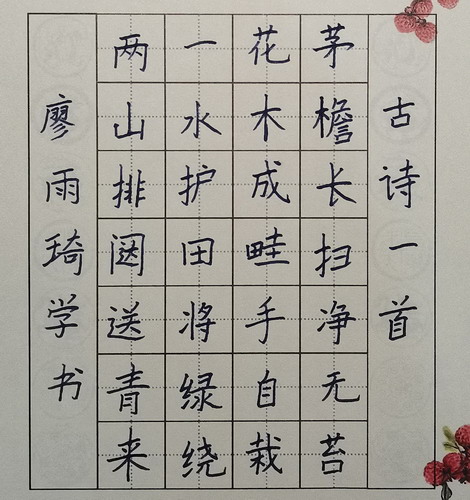 古诗一首
茅檐长扫净无苔
花木成畦手自栽
一水护田将绿绕
两山排闼送青来
廖雨琦学书